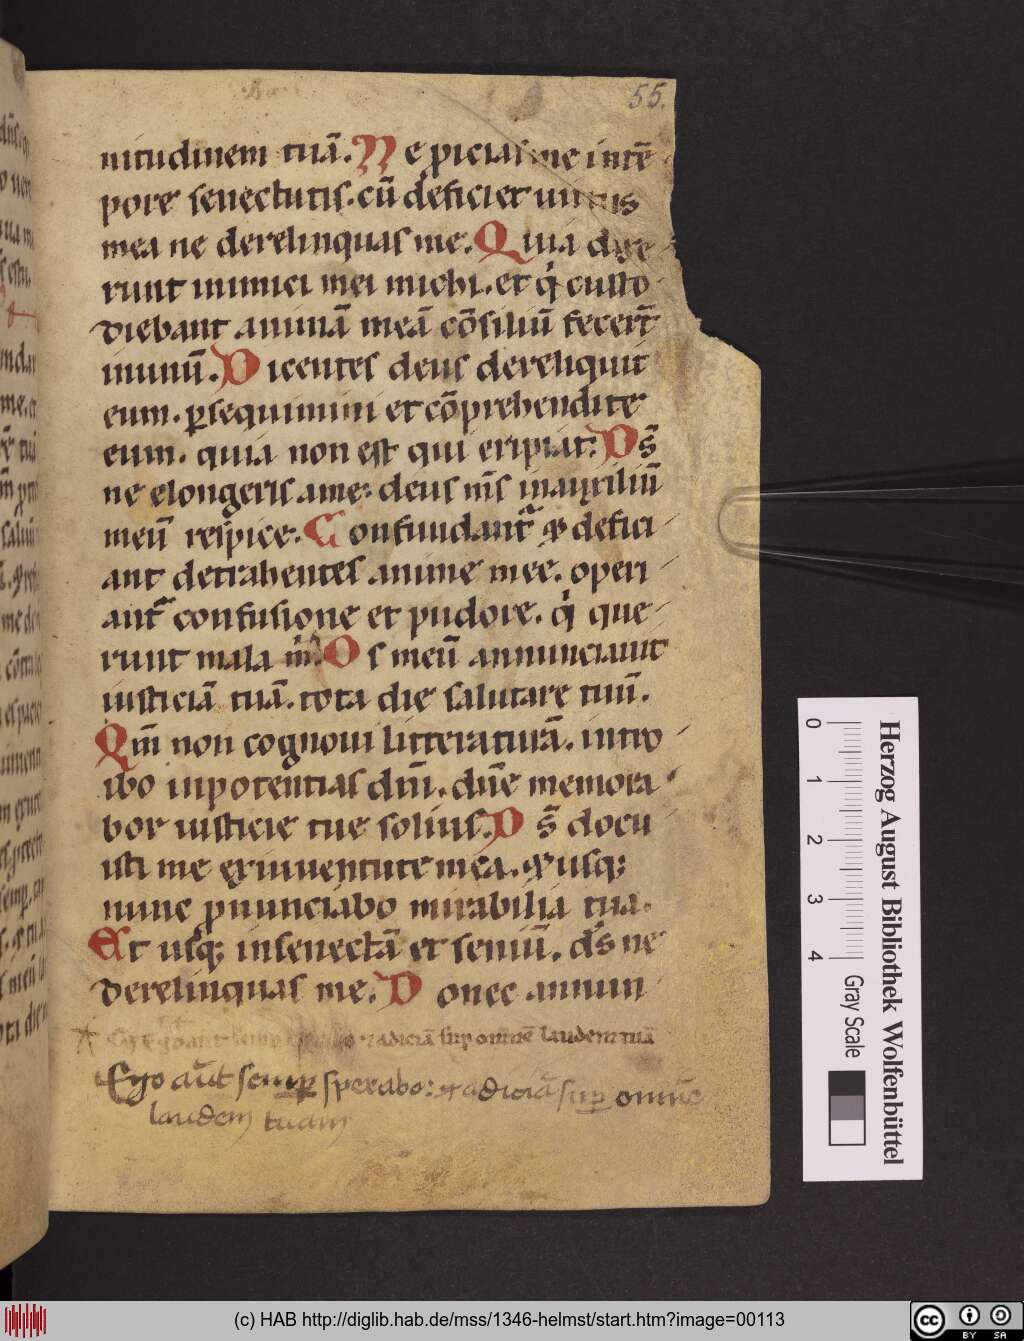 55.
nitudinem tuā. Ne piciaſ me intē
pore senectutiſ. cū deficiet uirtus
mea ne derelinquaſ me. Quia dixe
runt inimici mei michi. et q̇ custo
diebant animā meā cōsiliū fecer̄t
inunū. Dicenteſ deus dereliquit
eum. ꝑsequimini et cōprehendite
eum. quia non est qui eripiat. Ds̄
ne elongeris ame: deus m̄s inauxiliū
meū respice. Confundant᷑ ⁊ defici
ant detrahenteſ anime mee. operi
ant᷑ confusione et pudore. q̇ que
runt mala m̄. Os meū annunciauit
iusticiā tuā. tota die salutare tuū.
Qm̄ non cognoui litteraturā. intro
ibo inpotentiaſ dn̄i. dn̄e memora
bor iusticie tue soliuſ. Ds̄ docu
isti me exiuuentute mea. ⁊ usq;
nunc pnunciabo mirabilia tua.
Et usq; insenectā et seniū. ds̄ ne
derelinquaſ me. Donec annun
adiciā sup omnē laudem tuā
Ego aūt semꝑ sperabo: ⁊ adiciā suꝑ omnē
laudem tuam
0 1 2 3 4
Herzog August Bibliothek Wolfenbüttel
Gray Scale
(c) HAB http://diglib.hab.de/mss/1346-helmst/start.htm?image=00113
cc BY SA